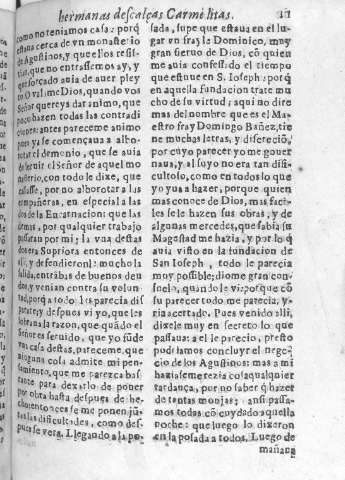 hermanas descalças Carmelitas. 11
como no teniamos casa: porq̃
estaua cerca de vn monasterio
de Agustinos, y que ellos resis
tian, que no entrassemos ay, y
que forçado auia de auer pley
to. O valame Dios, quando vos
Señor quereys dar animo, que
poco hazen todas las contradi
ciones: antes parece me animo
pues ya se començaua a albo-
rotar el demonio, que se auia
de seruir el Señor de aquel mo
nasterio, con todo le dixe, que
callasse, por no alborotar a las
compañeras, en especial a las
dos de la Encarnacion: que las
demas, por qualquier trabajo
passaran por mi; la vna destas
dos era Supriora entonces de
alli, y defendieronla mucho la
salida, entrābas de buenos deu
dos, y venian contra su volun-
tad, porq̃ a todos les parecia dis
parate; y despues vi yo, que les
sobraua la razon, que quādo el
Señor es seruido, que yo fūde
vna casa destas, pareceme, que
ninguna cosa admite mi pen-
samiento, que me parezca bas
tante para dexarlo de poner
por obra hasta despues de he-
cho: entonces se me ponen jū-
tas las dificultades, como des-
pues se vera. Llegando a la po-
sada, supe que estaua en el lu-
gar vn frayle Dominico, muy
gran sieruo de Dios, cō quiē
me auia confessado el tiempo
que estuue en S. Ioseph: porq̃
en aquella fundacion trate mu
cho de su virtud; aqui no dire
mas del nombre que es el Ma-
estro fray Domingo Bañez, tie
ne muchas letras, y discreciō,
por cuyo parecer yo me gouer
naua, y al suyo no era tan difi-
cultoso, como en todos lo que
yo yua a hazer, porque quien
mas conoce de Dios, mas faci-
les se le hazen sus obras, y de
algunas mercedes, que sabia su
Magestad me hazia, y por lo q̃
auia visto en la fundacion de
San Ioseph, todo le parecia
muy possible; diome gran con-
suelo, quando le vi: porque cō
su parecer todo me parecia, y-
ria acertado. Pues venido alli,
dixele muy en secreto lo que
passaua: a el le parecio, presto
podriamos concluyr el nego-
cio de los Agustinos: mas a mi
haziaseme rezia cosa qualquier
tardança, por no saber q̃ hazer
de tantas monjas; ansi passa-
mos todas cō cuydado aquella
noche: que luego lo dixeron
en la posada a todos. Luego de
mañana